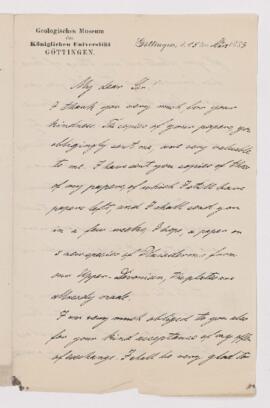 Geologisches Museum
der
Königlichen Universität
GÖTTINGEN.
Göttingen, d. 15
My dear Sir!
I thank you very much for your
kindness. The copies of your papers, you
obligingly sent me, are very valuable
to me. I have sent you copies of those
of my papers, of which I still have
papers left, and I shall send you
in a few weeks, I hope, a paper on
species of from
our Upper-Devonian, the plates are
already made.
I am very much obliged to you also
for your kind acceptance of my offer
of exchange. I shall be very glad to